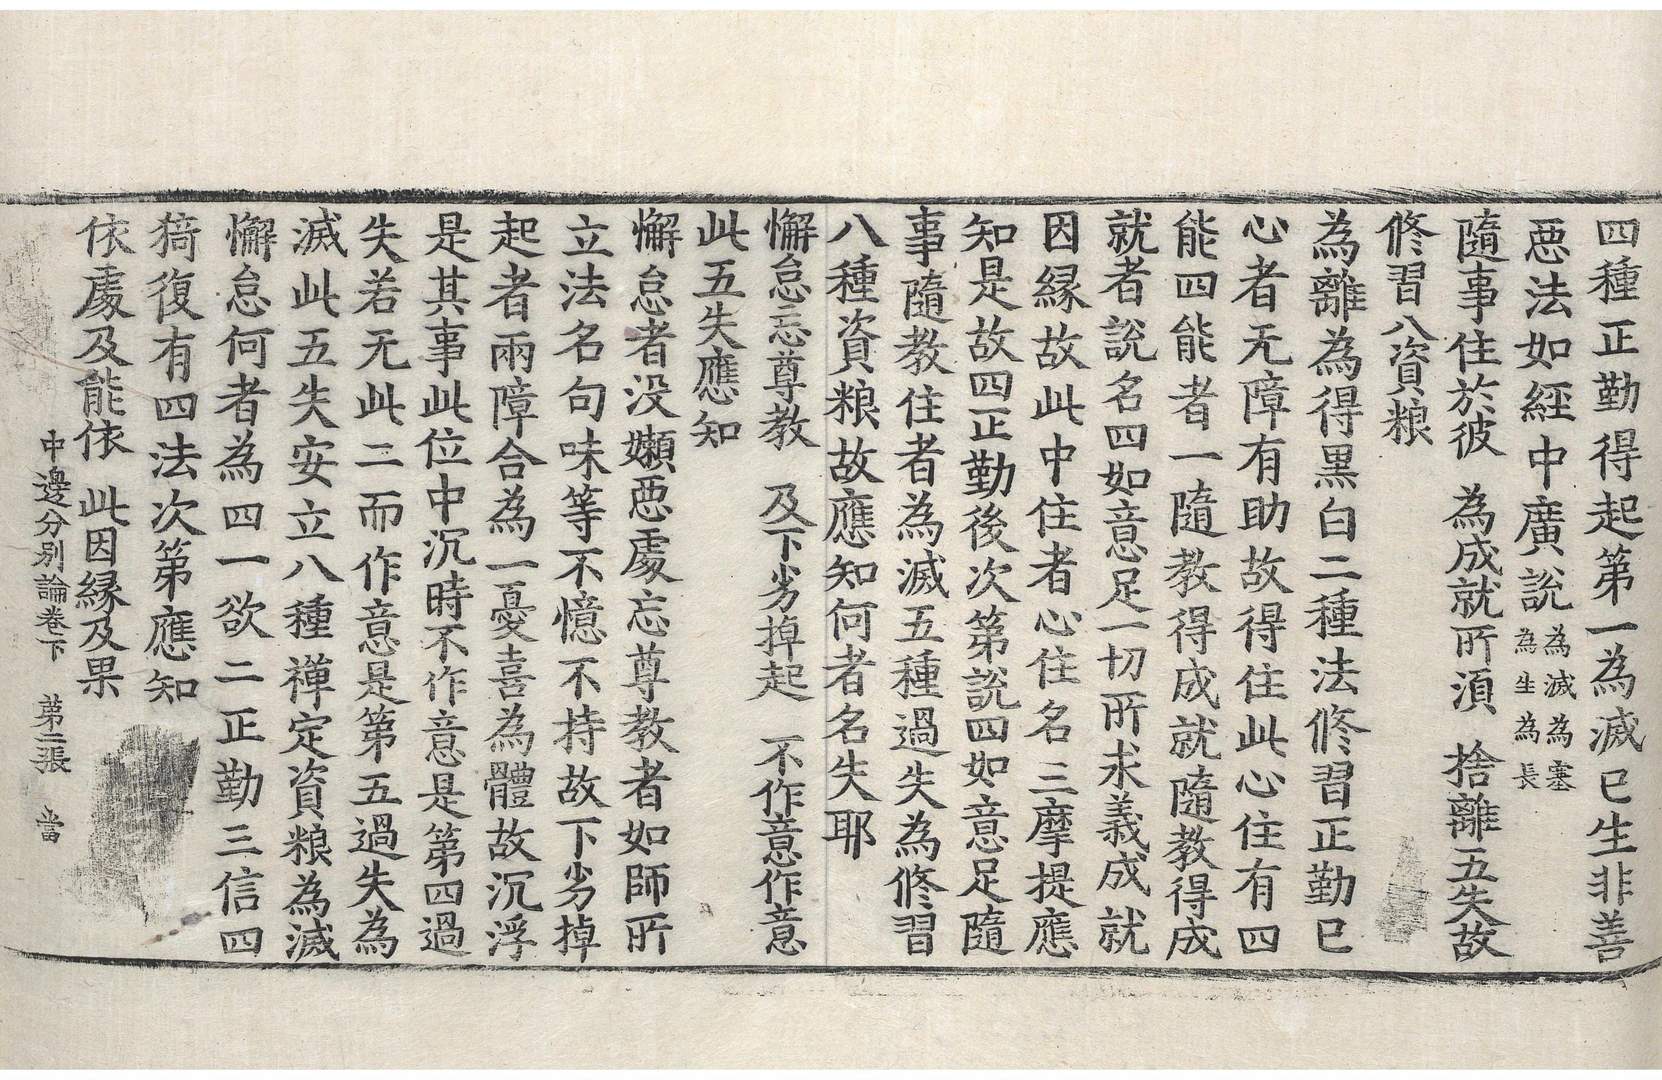 四種正勤得起第一為滅已生非善
惡法如經中廣說為滅為塞為生為長
隨事住於彼　為成就所須　捨離五失故
修習八資粮
為離為得黑白二種法修習正勤已
心者无障有助故得住此心住有四
能四能者一隨教得成就隨教得成
就者說名四如意足一切所求義成就
因緣故此中住者心住名三摩提應
知是故四正勤後次第說四如意足隨
事隨教住者為滅五種過失為修習
八種資粮故應知何者名失耶
懈怠忘尊教　及下劣掉起　不作意作意
此五失應知
懈怠者没嬾惡處忘尊教者如師所
立法名句味等不憶不持故下劣掉
起者兩障合為一憂喜為體故沉浮
是其事此位中沉時不作意是第四過
失若无此二而作意是第五過失為
滅此五失安立八種禪定資粮為滅
懈怠何者為四一欲二正勤三信四
猗復有四法次第應知
依處及能依　此因緣及果
中邊分別論卷下　第二張　當